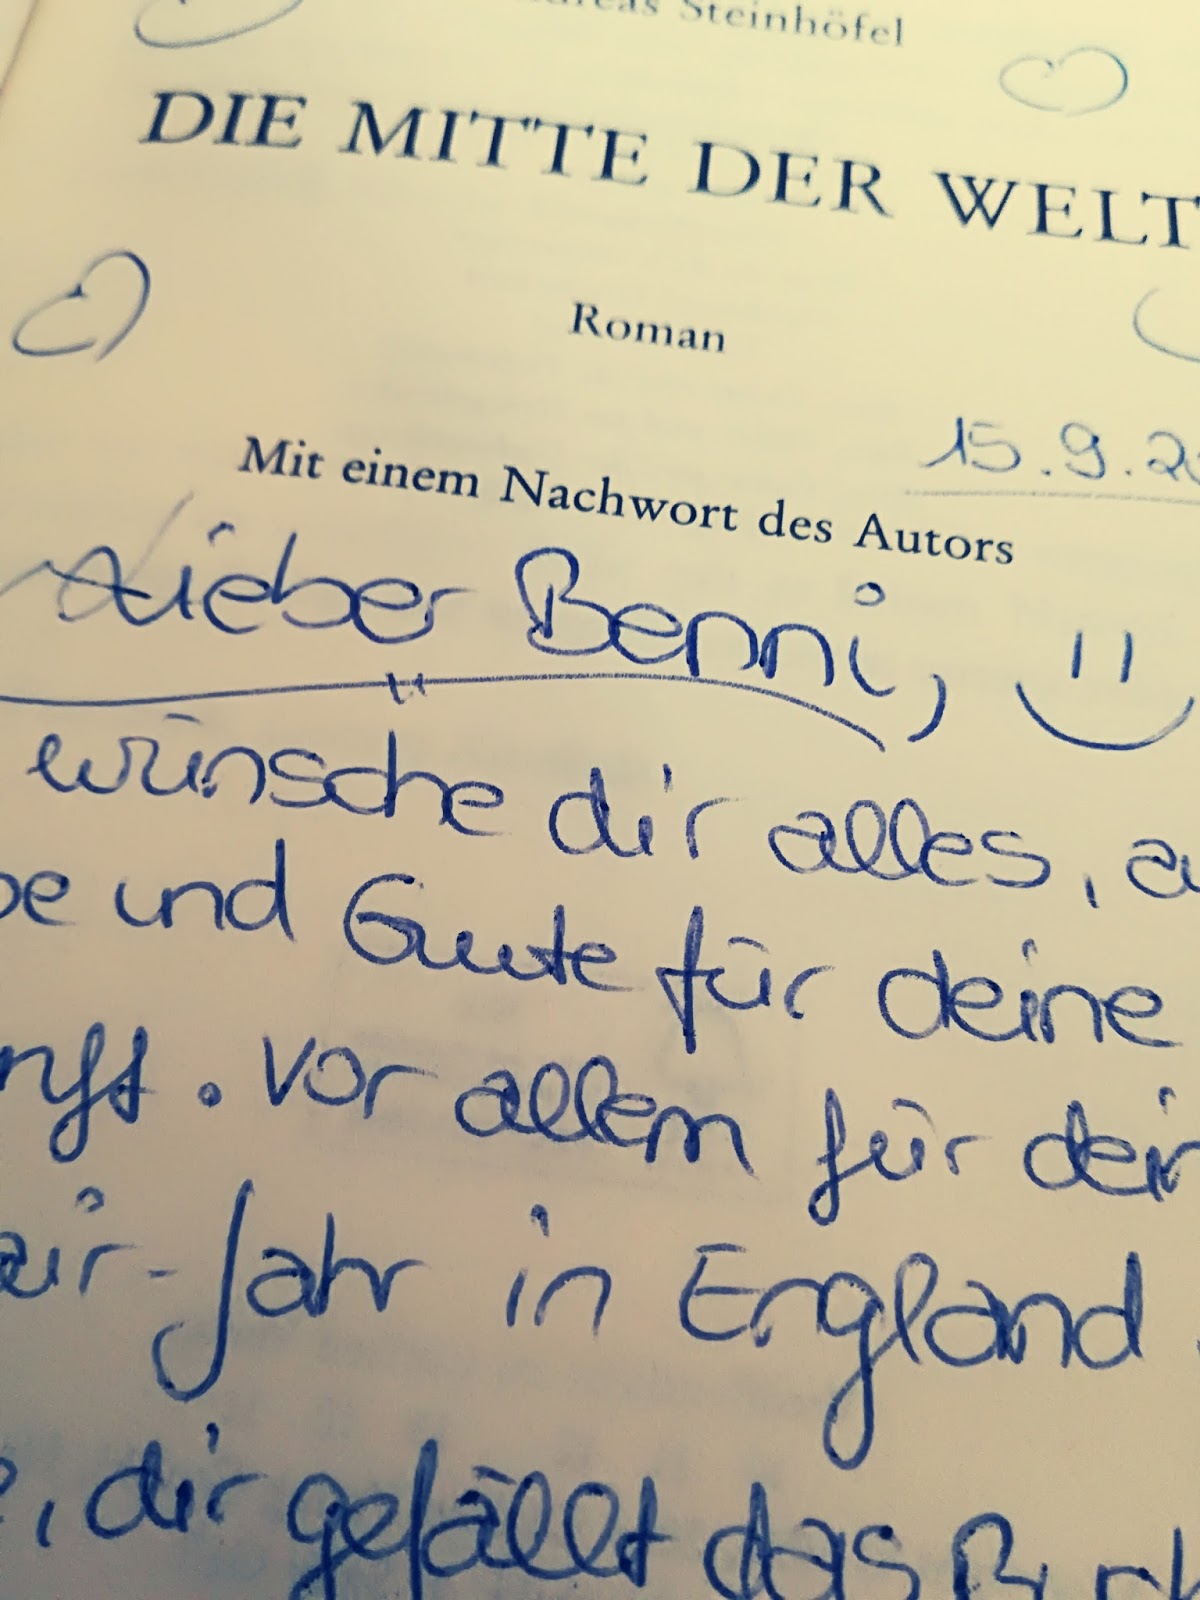 Steinhöfel
DIE MITTE DER WELT
Roman
15.9.2
Mit einem Nachwort des Autors
Lieber Benni,
wünsche dir alles,
und Guute für deine
. Vor allem für
air-Jahr in England
, dir gefällt das